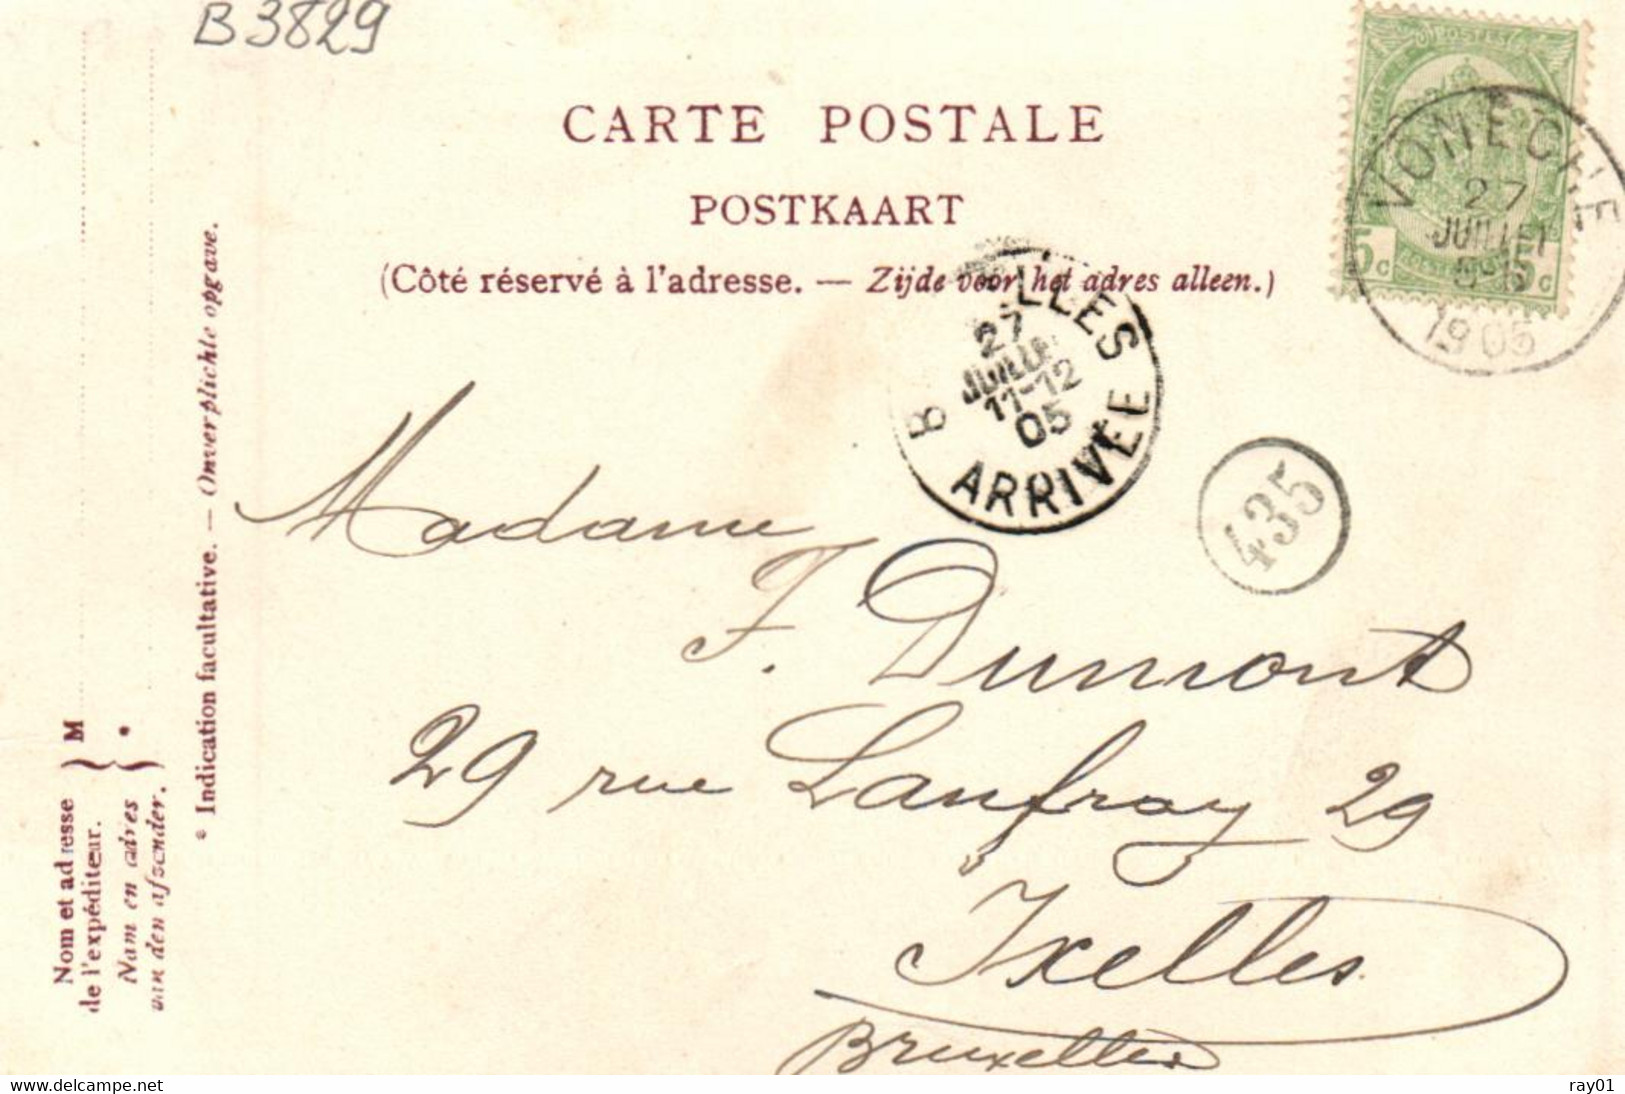 B3829
CARTE POSTALE
POSTKAART
(Côté réservé à l'adresse. — Zijde voor het adres alleen.)
POSTES
5c 5c
VONÊCHE
27
JUILLET
1905
LLES
27
JUILLE
11-12
05
B
ARRIVÉE
435
Madame
F. Dumont
29 rue Lanfray 29
Ixelles
Bruxelles
* Indication facultative. — Onverplichte opgave.
M
*
Nom et adresse
de l'expéditeur.
Nam en adres
van den afsender.
www.delcampe.net
ray01